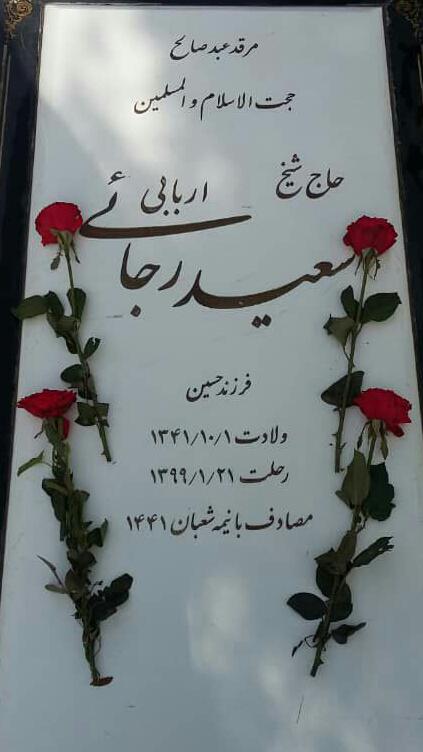 مرقد عبد صالح
حجت الاسلام و المسلمین
حاج شیخ
سعید رجائی اربابی
فرزند حسین
ولادت ۱۳۴۱/۱۰/۱
رحلت ۱۳۹۹/۱/۲۱
مصادف با نیمه شعبان ۱۴۴۱